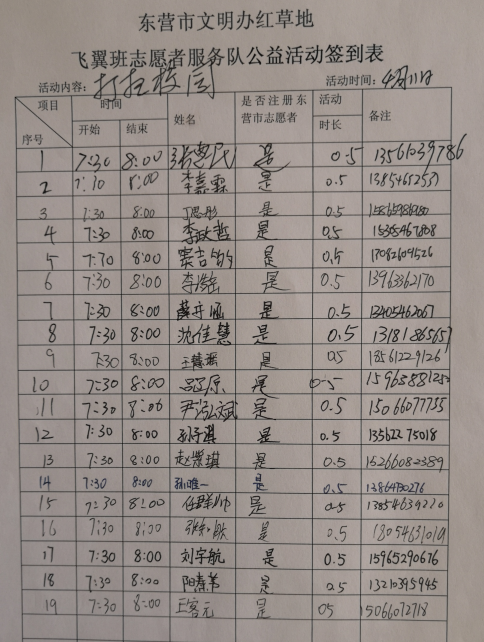 东营市文明办红草地
飞翼班志愿者服务队公益活动签到表
活动内容：打扫校园 活动时间：4月11日
项目 时间 姓名 是否注册东营市志愿者 活动时长 备注
序号 开始 结束
1 7:30 8:00 张惠民 是 0.5 13561039786
2 7:30 8:00 李嘉霖 是 0.5
3 7:30 8:00 丁思彤 是 0.5
4 7:30 8:00 李政哲 是 0.5 15305467808
5 7:30 8:00 是 0.5
6 7:30 8:00 是 0.5 13963362170
7 7:30 8:00 是 0.5 13405462067
8 7:30 8:00 沈佳慧 是 0.5 13181865657
9 7:30 8:00 是 0.5 18561229126
10 7:30 8:00 是 0.5
11 7:30 8:00 尹泓斌 是 0.5 15066077755
12 7:30 8:00 孙子淇 是 0.5 13562275018
13 7:30 8:00 赵紫琪 是 0.5 15266082389
14 7:30 8:00 孙唯一 是 0.5
15 7:30 8:00 任群帅 是 0.5 13854639220
16 7:30 8:00 是 0.5 18054631019
17 7:30 8:00 刘宇航 是 0.5 15965290676
18 7:30 8:00 是 0.5 13210395945
19 7:30 8:00 王客元 是 05 15066072718